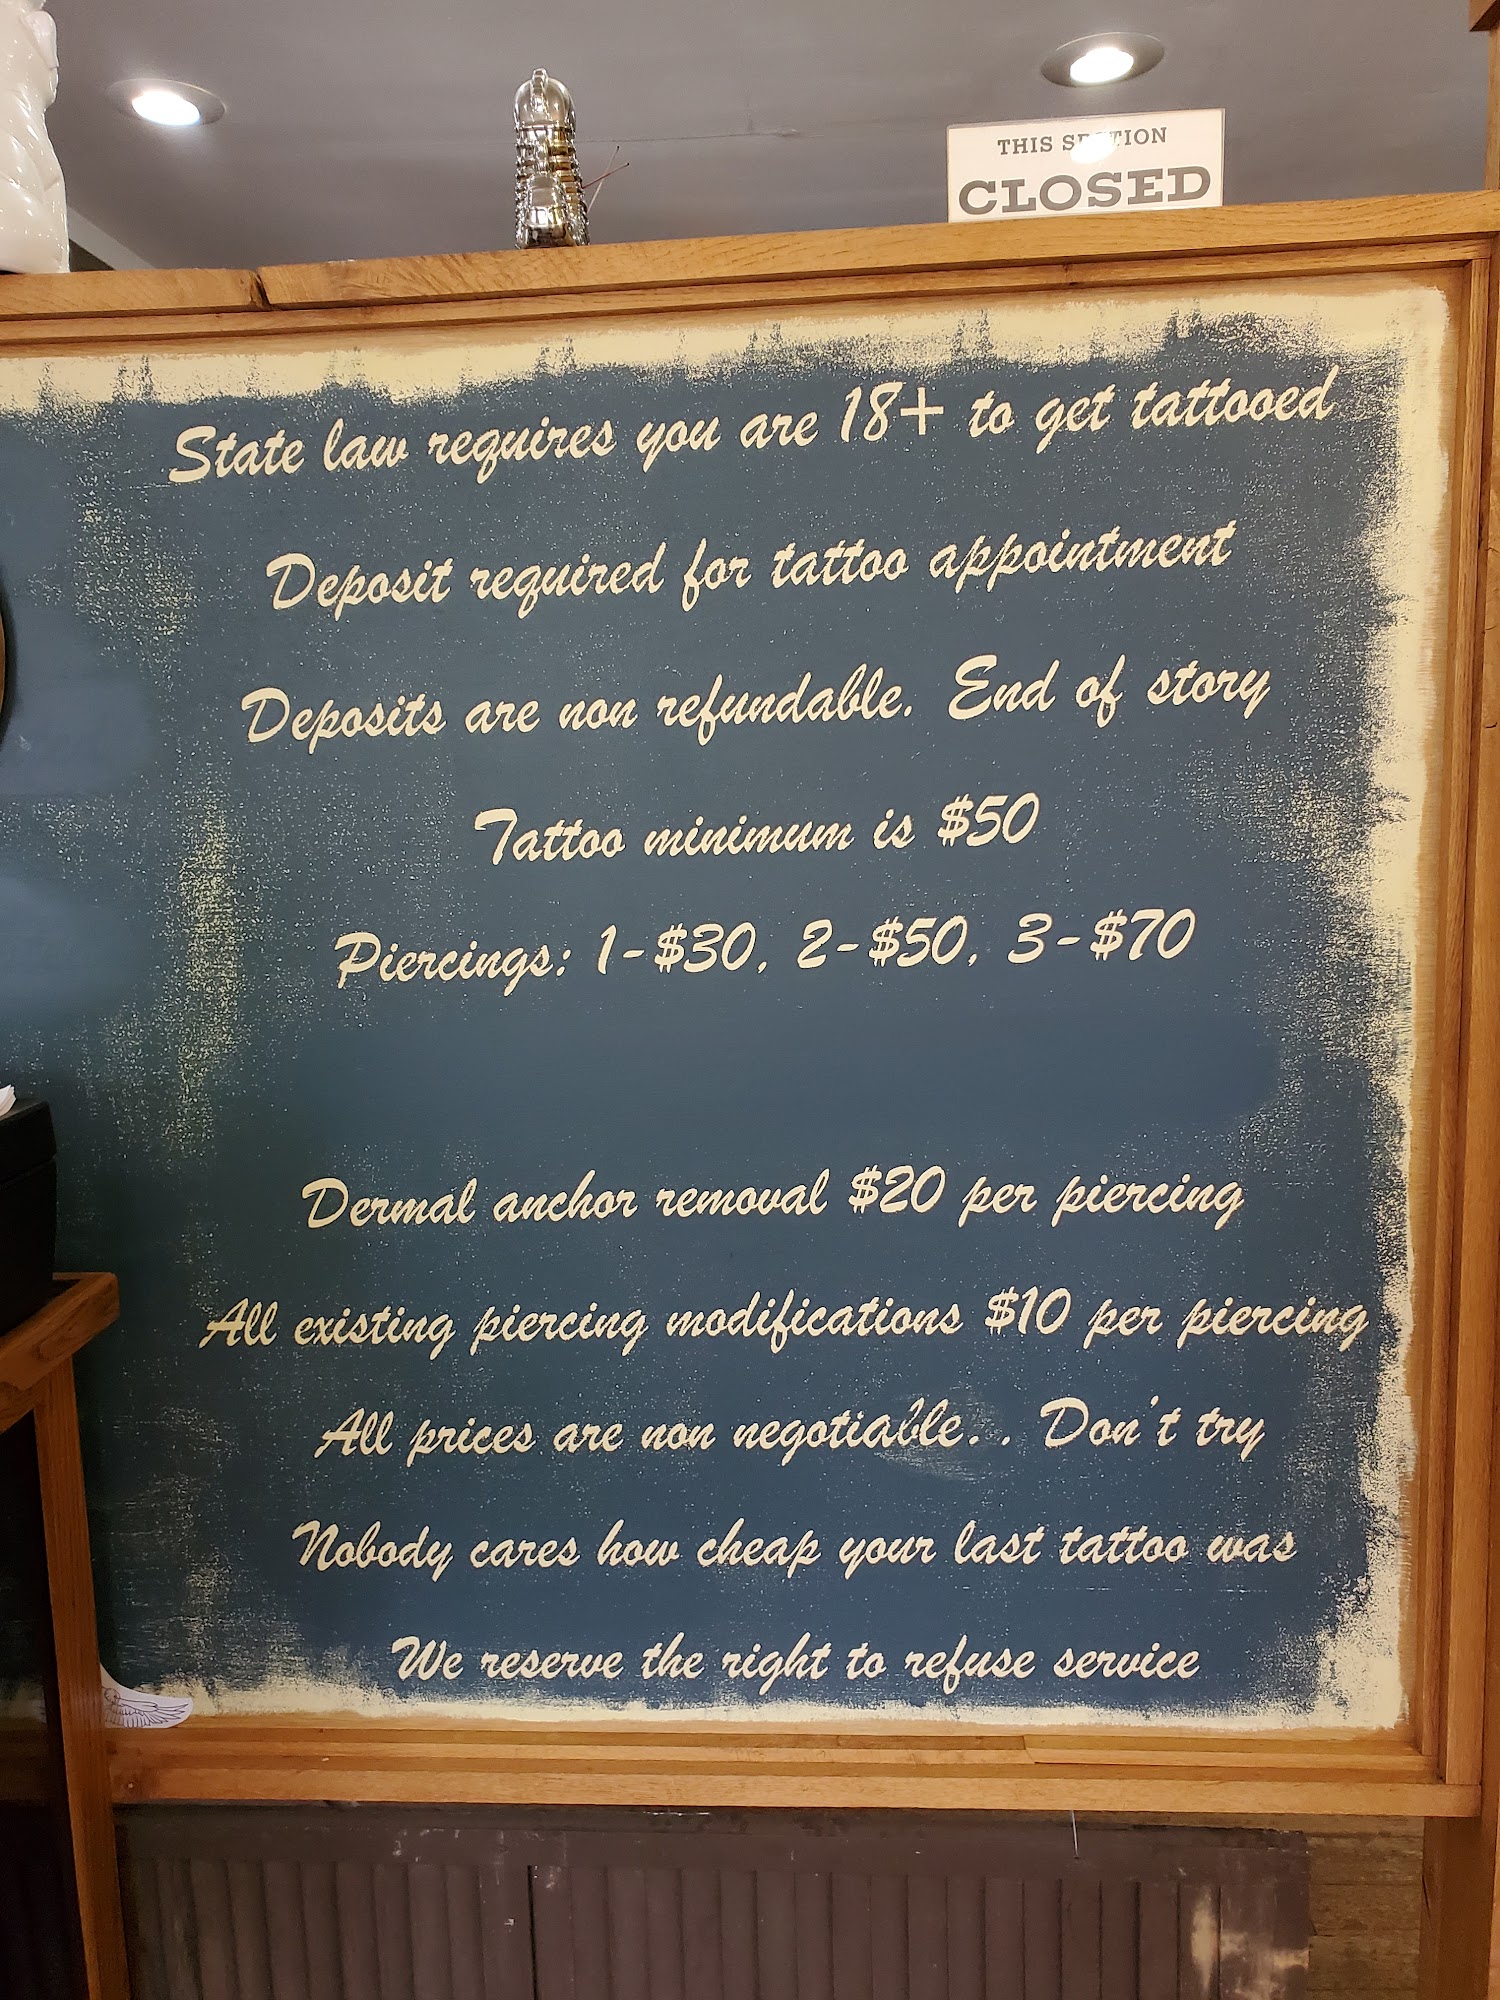 THIS SECTION
CLOSED
State law requires you are 18+ to get tattooed
Deposit required for tattoo appointment
Deposits are non refundable. End of story
Tattoo minimum is $50
Piercings: 1-$30, 2-$50, 3-$70
Dermal anchor removal $20 per piercing
All existing piercing modifications $10 per piercing
All prices are non negotiable. . Don't try
Nobody cares how cheap your last tattoo was
We reserve the right to refuse service